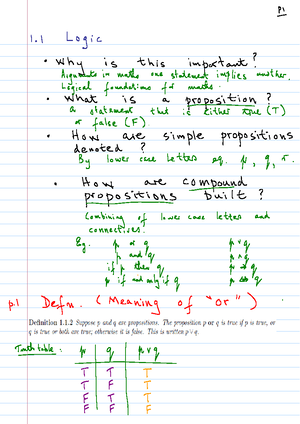 P1
1.1 Logic
• Why is this important?
Arguments in maths one statement implies another.
Logical foundations of maths.
• What is a proposition?
a statement that is either true (T)
or false (F)
• How are simple propositions
denoted?
By lower case letters eg. p, q, r.
• How are compound
propositions built?
Combining of lower case letters and
connectives.
Eg. p or q p ∨ q
p and q p ∧ q
if p then q p ⇒ q
p if and only if q p ⇔ q
p.1 Defn. (Meaning of "or")
Definition 1.1.2 Suppose p and q are propositions. The proposition p or q is true if p is true, or
q is true or both are true; otherwise it is false. This is written p ∨ q.
Truth table: p q p ∨ q
T T T
T F T
F T T
F F F